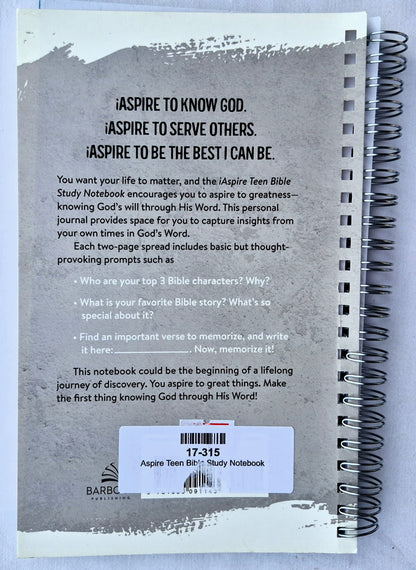 iASPIRE TO KNOW GOD.
iASPIRE TO SERVE OTHERS.
iASPIRE TO BE THE BEST I CAN BE.
You want your life to matter, and the iAspire Teen Bible
Study Notebook encourages you to aspire to greatness—
knowing God's will through His Word. This personal
journal provides space for you to capture insights from
your own times in God's Word.
Each two-page spread includes basic but thought-
provoking prompts such as
• Who are your top 3 Bible characters? Why?
• What is your favorite Bible story? What's so
special about it?
• Find an important verse to memorize, and write
it here:____________. Now, memorize it!
This notebook could be the beginning of a lifelong
journey of discovery. You aspire to great things. Make
the first thing knowing God through His Word!
17-315
Aspire Teen Bible Study Notebook
BARBO
PUBLISHING